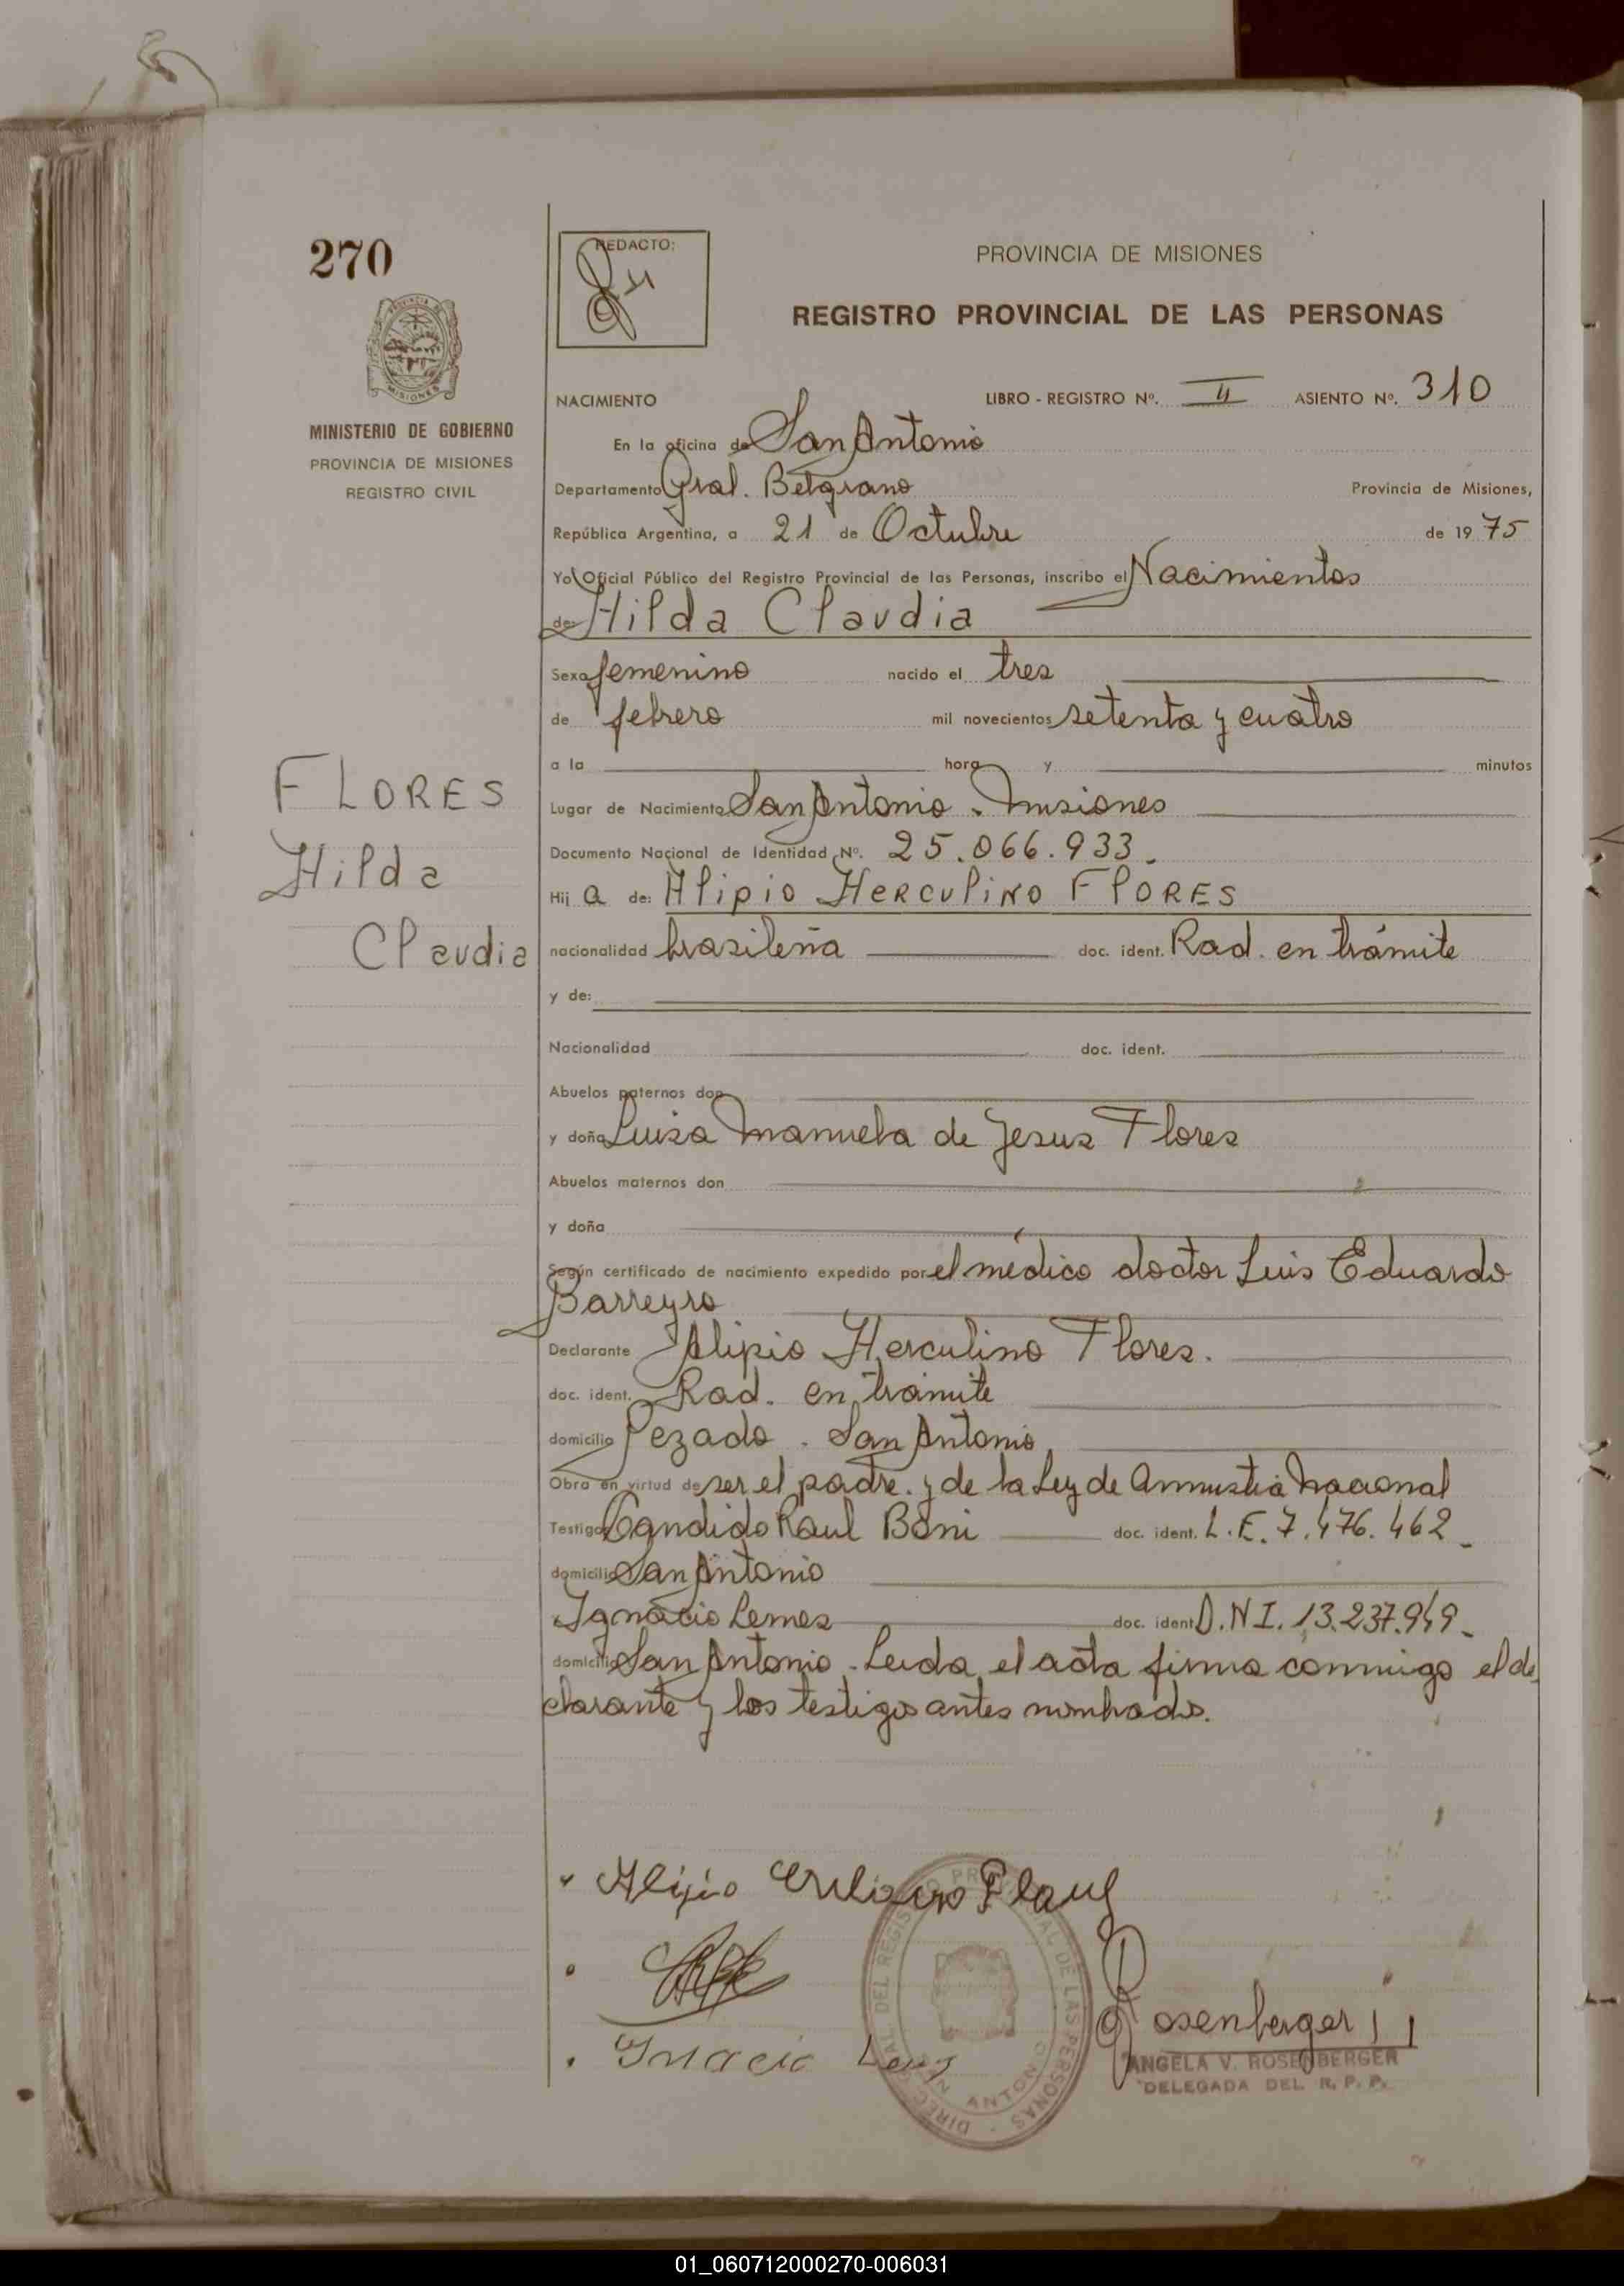 270
PROVINCIA DE MISIONES
MINISTERIO DE GOBIERNO
PROVINCIA DE MISIONES
REGISTRO CIVIL
FLORES
Hilda
Claudia
REDACTO:
PROVINCIA DE MISIONES
REGISTRO PROVINCIAL DE LAS PERSONAS
NACIMIENTO LIBRO - REGISTRO Nº. II ASIENTO Nº. 310
En la oficina de San Antonio
Departamento Gral. Belgrano Provincia de Misiones,
República Argentina, a 21 de Octubre de 1975
Yo Oficial Público del Registro Provincial de las Personas, inscribo el Nacimientos
de: Hilda Claudia
Sexo femenino nacido el tres
de febrero mil novecientos setenta y cuatro
a la hora y minutos
Lugar de Nacimiento San Antonio . Misiones
Documento Nacional de Identidad Nº. 25.066.933.
Hij a de: Alipio HERCULINO FLORES
nacionalidad brasileña doc. ident. Rad. en trámite
y de:
Nacionalidad doc. ident.
Abuelos paternos don
y doña Luisa Manuela de Jesus Flores
Abuelos maternos don
y doña
Según certificado de nacimiento expedido por el médico doctor Luis Eduardo
Barreyro
Declarante Alipio Herculino Flores.
doc. ident. Rad. en trámite
domicilio Pezado . San Antonio
Obra en virtud de ser el padre. y de la Ley de Amnistia Nacional
Testigo Candido Raul Boni doc. ident. L.E. 7.476.462
domicilio San Antonio
Ignacio Lemes doc. ident. D.N.I. 13.237.949
domicilio San Antonio . Leida el acta firma conmigo el de
clarante y los testigos antes nombrados.
Alipio
Ignacio
Rosenberger
ANGELA V. ROSENBERGER
DELEGADA DEL R. P. P.
SAN ANTONIO
01_060712000270-006031